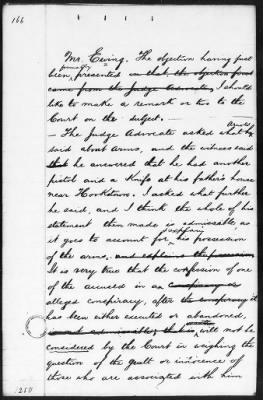 166
Mr. Ewing. The objection having just
been properly presented in that the objection first
came from the Judge Advocate, I should
like to make a remark or two to the
Court on the subject. —
— The Judge Advocate asked what Arnold
said about arms, and the witness said
that he answered that he had another
pistol and a Knife at his father's house
near Hookstown. I asked what further
he said, and I think the whole of his
statement then made is admissible, as
it goes to account for his possession
of the arms, and explains the possession
It is very true that the confession of one
of the accused in a conspiracy or
alleged conspiracy, after the conspiracy it
has been either executed or abandoned,
will not be
considered by the Court in weighing the
question of the guilt or innocence of
those who are associated with him